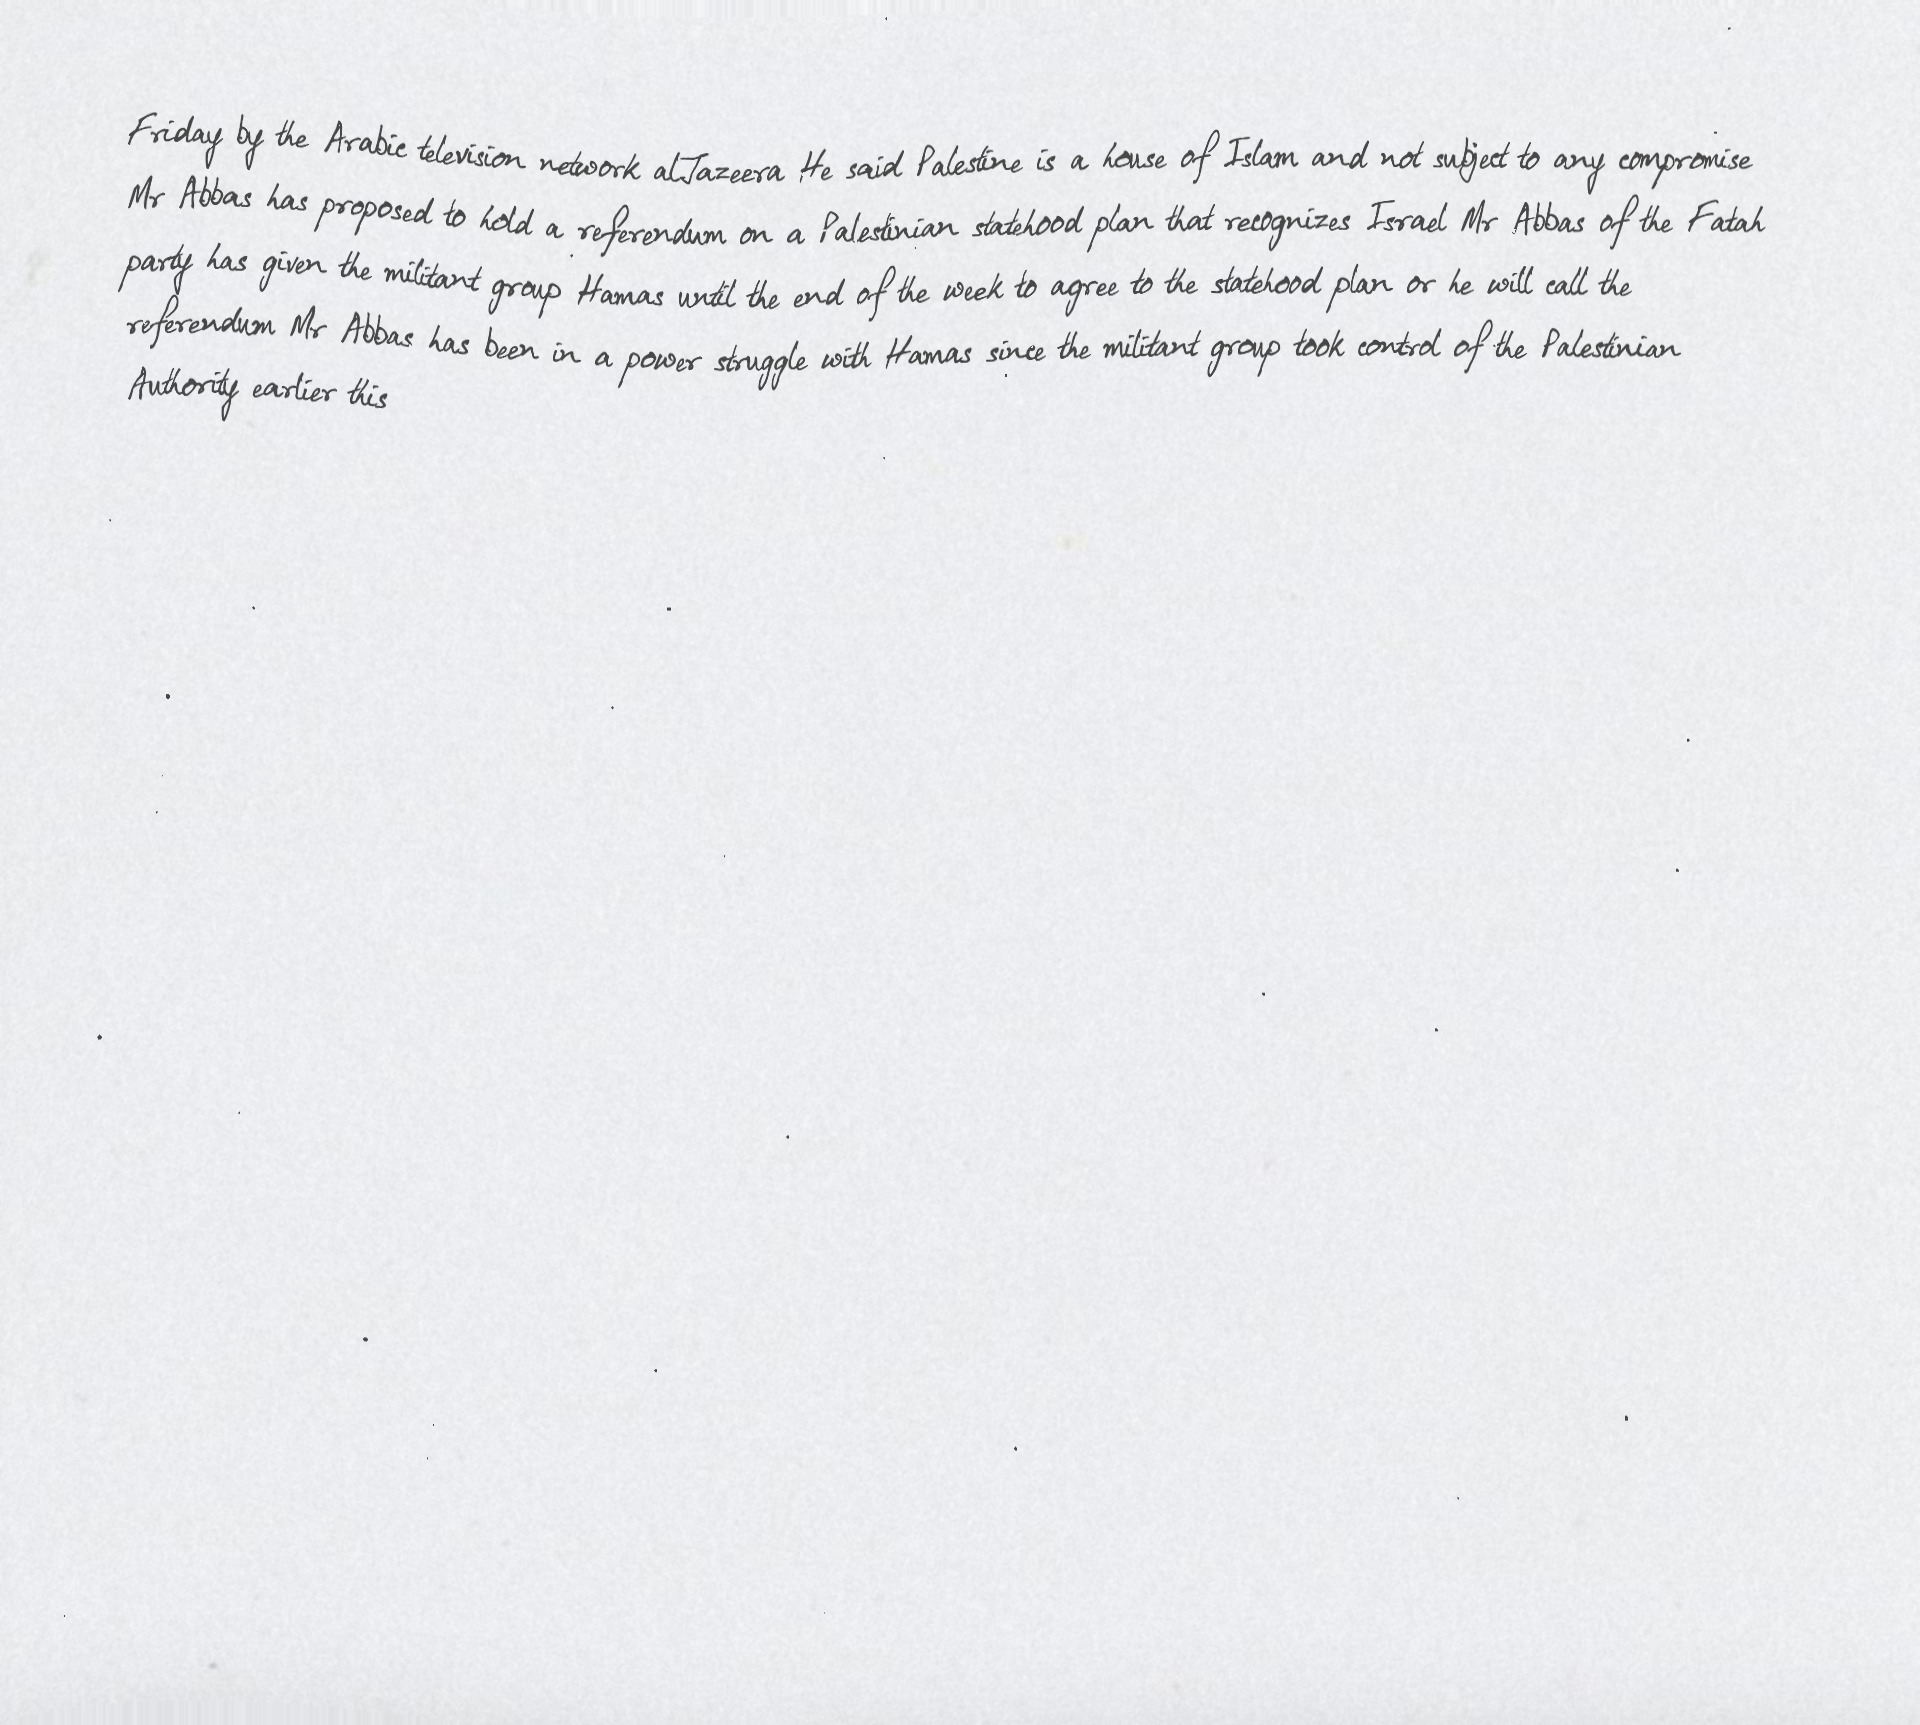 Friday by the Arabic television network alJazeera He said Palestine is a house of Islam and not subject to any compromise
Mr Abbas has proposed to hold a referendum on a Palestinian statehood plan that recognizes Israel Mr Abbas of the Fatah
party has given the militant group Hamas until the end of the week to agree to the statehood plan or he will call the
referendum Mr Abbas has been in a power struggle with Hamas since the militant group took control of the Palestinian
Authority earlier this